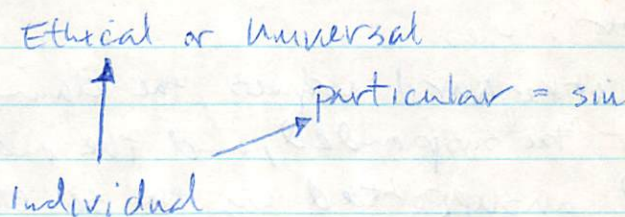 Ethical or Universal
particular = sin
Individual